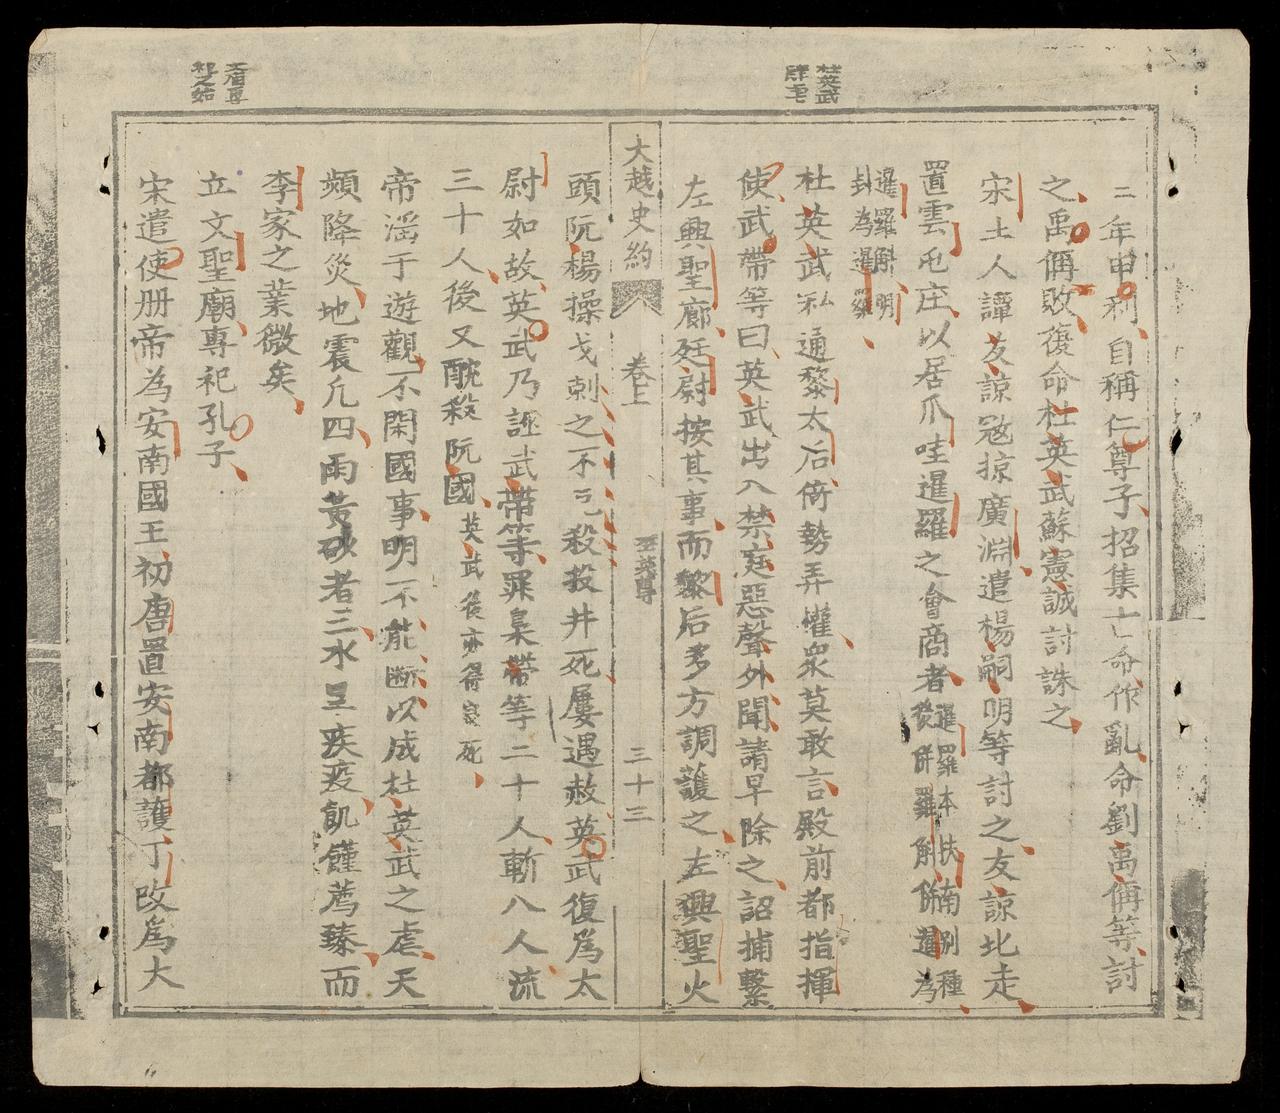 杜英武
肆宅
二年申利自稱仁尊子招集亡命作亂命劉禹偁等討
之禹偁敗復命杜英武蘇憲誠討誅之
宋土人譚友諒寇掠廣淵遣楊嗣明等討之友諒北走
置雲屯庄以居爪哇暹羅之會商者暹羅本扶南別種
後併羅斛併暹為
暹羅斛明
封為暹羅
杜英武私通黎太后倚勢弄權衆莫敢言殿前都指揮
使武帶等曰英武出入禁庭惡聲外聞請早除之詔捕繫
左興聖廊廷尉按其事而黎后多方調護之左興聖火
大越史約 卷上 英尊 三十三
頭阮楊操戈刺之不 殺投井死屢遇赦英武復爲太
尉如故英武乃誣武帶等罪梟帶等二十人斬八人流
三十人後又酖殺阮國英武後亦得 死
帝滛于遊觀不閑國事明不能断以成杜英武之虐天
頻降災地震凢四雨黄砂者三水旱疾疫飢饉荐臻而
李家之業微矣
文宣尊
祀之始
立文聖廟專祀孔子
宋遣使册帝為安南國王初唐置安南都護丁改爲大